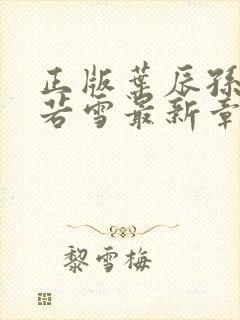 正版叶辰孙
若雪最新章
黎雪梅